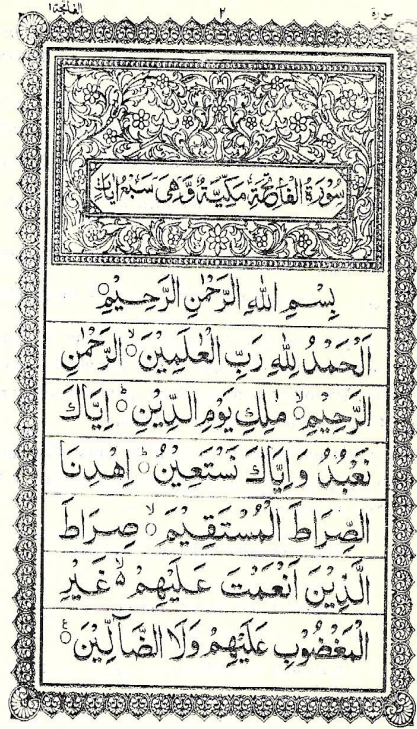 سورة ٢ الفاتحة ١
سُوْرَةُ الْفَاتِحَةِ مَكِّيَّةٌ وَّهِىَ سَبْعُ اٰيَاتٍ
بِسْمِ اللهِ الرَّحْمٰنِ الرَّحِيْمِ
اَلْحَمْدُ لِلّٰهِ رَبِّ الْعٰلَمِيْنَ ۙ الرَّحْمٰنِ
الرَّحِيْمِ ۙ مٰلِكِ يَوْمِ الدِّيْنِ ؕ اِيَّاكَ
نَعْبُدُ وَاِيَّاكَ نَسْتَعِيْنُ ؕ اِهْدِنَا
الصِّرَاطَ الْمُسْتَقِيْمَ ۙ صِرَاطَ
الَّذِيْنَ اَنْعَمْتَ عَلَيْهِمْ ۙ۬ غَيْرِ
الْمَغْضُوْبِ عَلَيْهِمْ وَلَا الضَّآلِّيْنَ